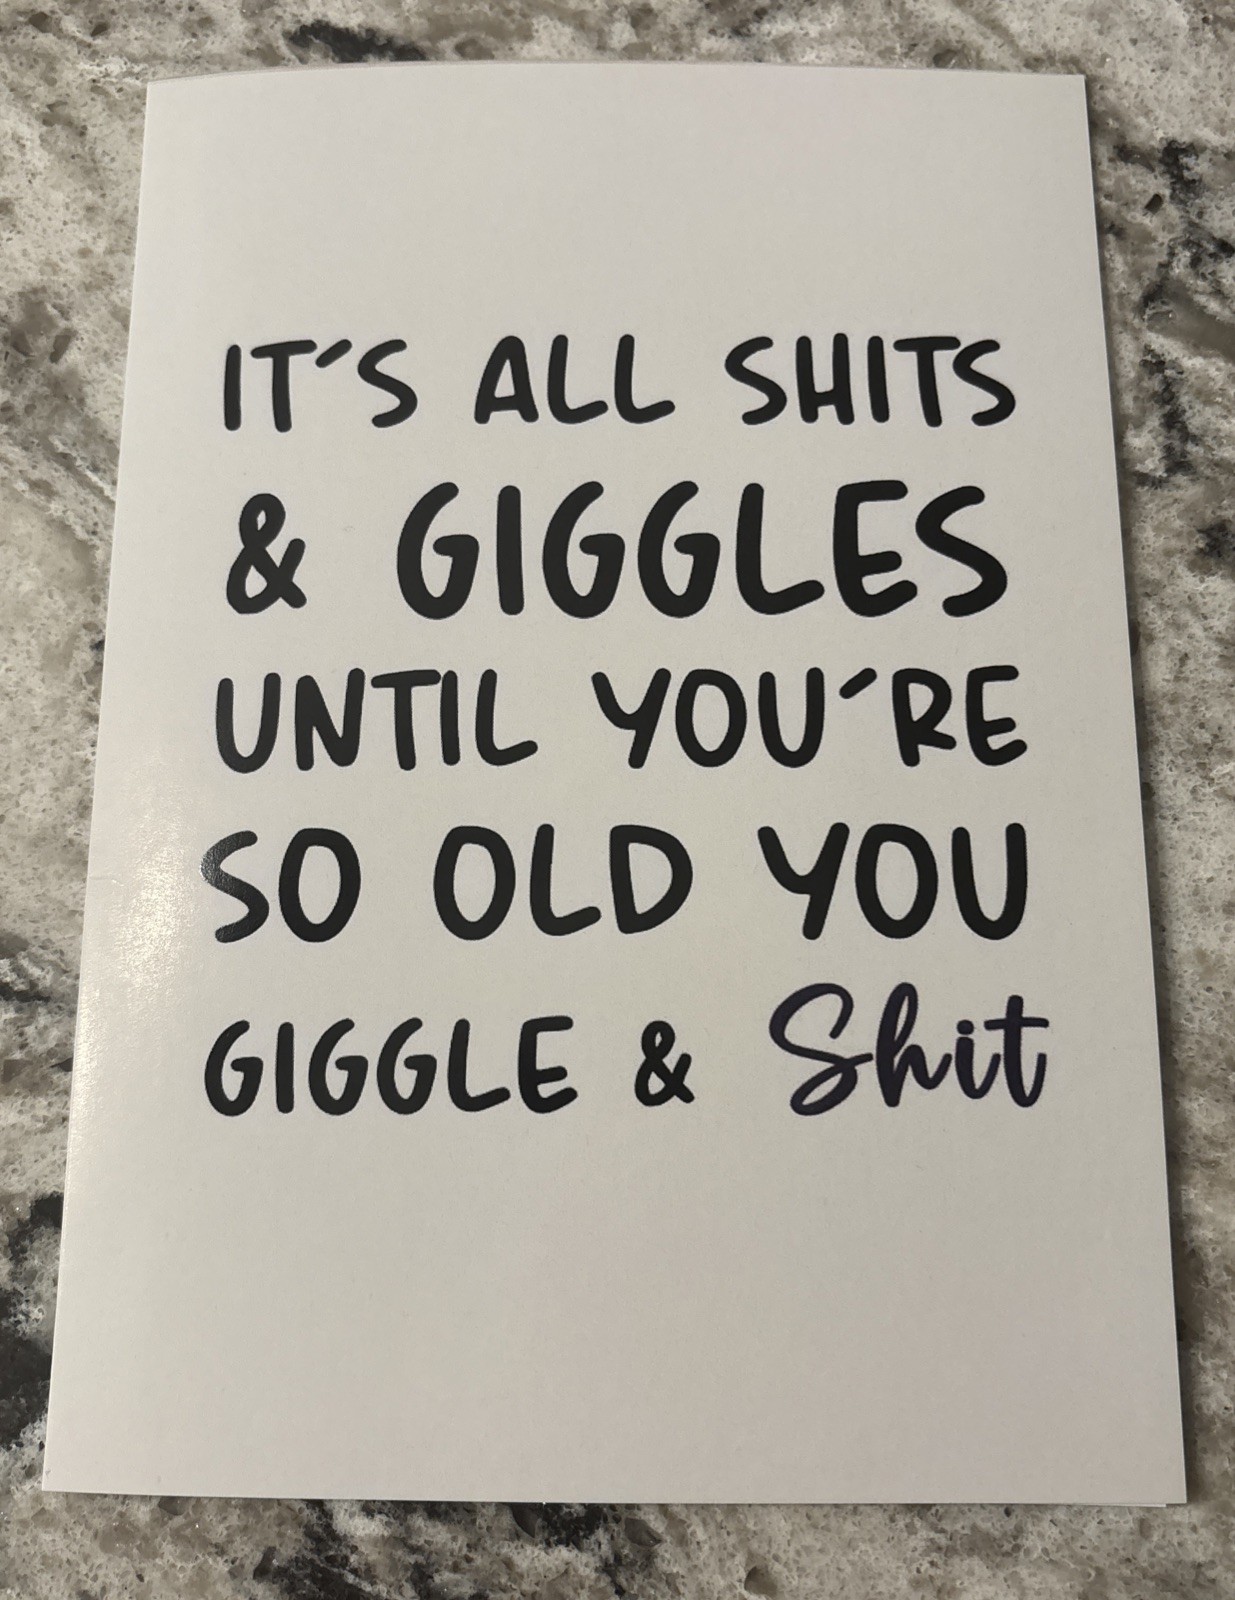 IT'S ALL SHITS
& GIGGLES
UNTIL YOU'RE
SO OLD YOU
GIGGLE & Shit